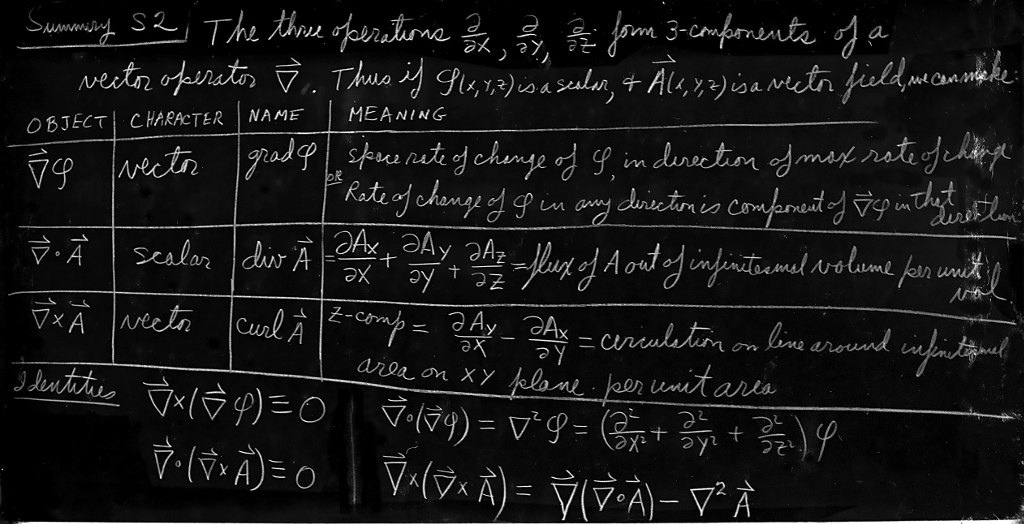 Summary S2 The three operations ∂/∂x, ∂/∂y, ∂/∂z form 3-components of a
vector operator ∇⃗. Thus if φ(x,y,z) is a scalar, + A⃗(x,y,z) is a vector field, we can make:
OBJECT CHARACTER NAME MEANING
∇⃗φ vector grad φ space rate of change of φ, in direction of max rate of change
OR Rate of change of φ in any direction is component of ∇⃗φ in that direction
∇⃗·A⃗ scalar div A⃗ = ∂Ax/∂x + ∂Ay/∂y + ∂Az/∂z = flux of A out of infinitesmal volume per unit vol.
∇⃗×A⃗ vector curl A⃗ z-comp = ∂Ay/∂x - ∂Ax/∂y = circulation on line around infinitesmal
area on xy plane. per unit area
Identities ∇⃗×(∇⃗φ) ≡ 0 ∇⃗·(∇⃗φ) = ∇²φ = (∂²/∂x² + ∂²/∂y² + ∂²/∂z²) φ
∇⃗·(∇⃗×A⃗) ≡ 0 ∇⃗×(∇⃗×A⃗) = ∇⃗(∇⃗·A⃗) - ∇²A⃗